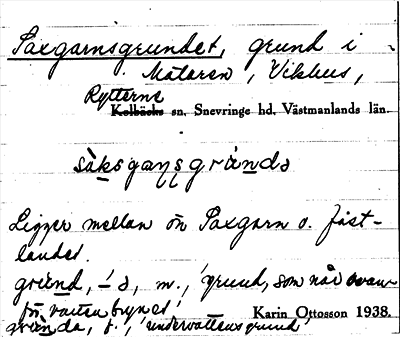 Saxgarnsgrundet, grund i
Mälaren, Vikhus,
Rytterne
Kolbäcks sn. Snevringe hd. Västmanlands län.
Ligger mellan ön Saxgarn o. fast-
landet.
grund, -ə, m., 'grund, som når ovan-
för vattenbrynet'
Karin Ottosson 1938.
f., 'undervattensgrund'